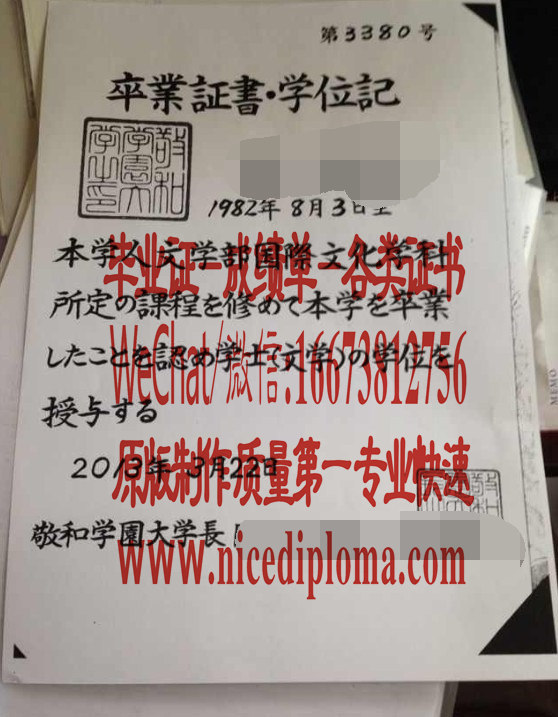 第3380号
卒業証書・学位記
敬和
学園大
学之印
1982年8月3日生
本学人文学部国際文化学科
毕业证-成绩单-各类证书
所定の課程を修めて本学を卒業
WeChat/微信:16673812756
したことを認め学士(文学)の学位を
授与する
原版制作质量第一专业快速
2013年3月22日
敬和学園大学長
www.nicediploma.com
MEMO